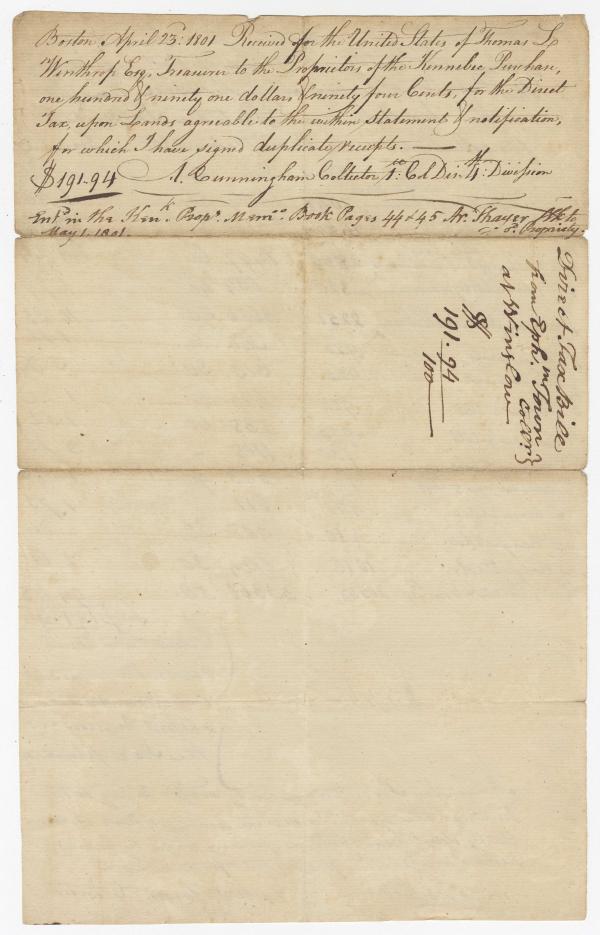 Boston April 23d: 1801 Received for the United States of Thomas L
Winthrop Esq, Treasurer to the Proprietors of the Kennebec Purchase,
one hundred & ninety one dollars & ninety four Cents, for the Direct
Tax, upon Lands agreable to the within Statement & notification,
for which I have signed duplicate receipts. —
$191.94 A. Cunningham Collector 1st: Col Disn 4th: Division
Entd in the Kenk Propr Memo Book Pages 44 & 45 Ar. Thayer Clk to
May 1. 1801. sd. Propriety.
Direct Tax Bill
from Ephm Town
Collr }
at Winslow
$
191.94
100